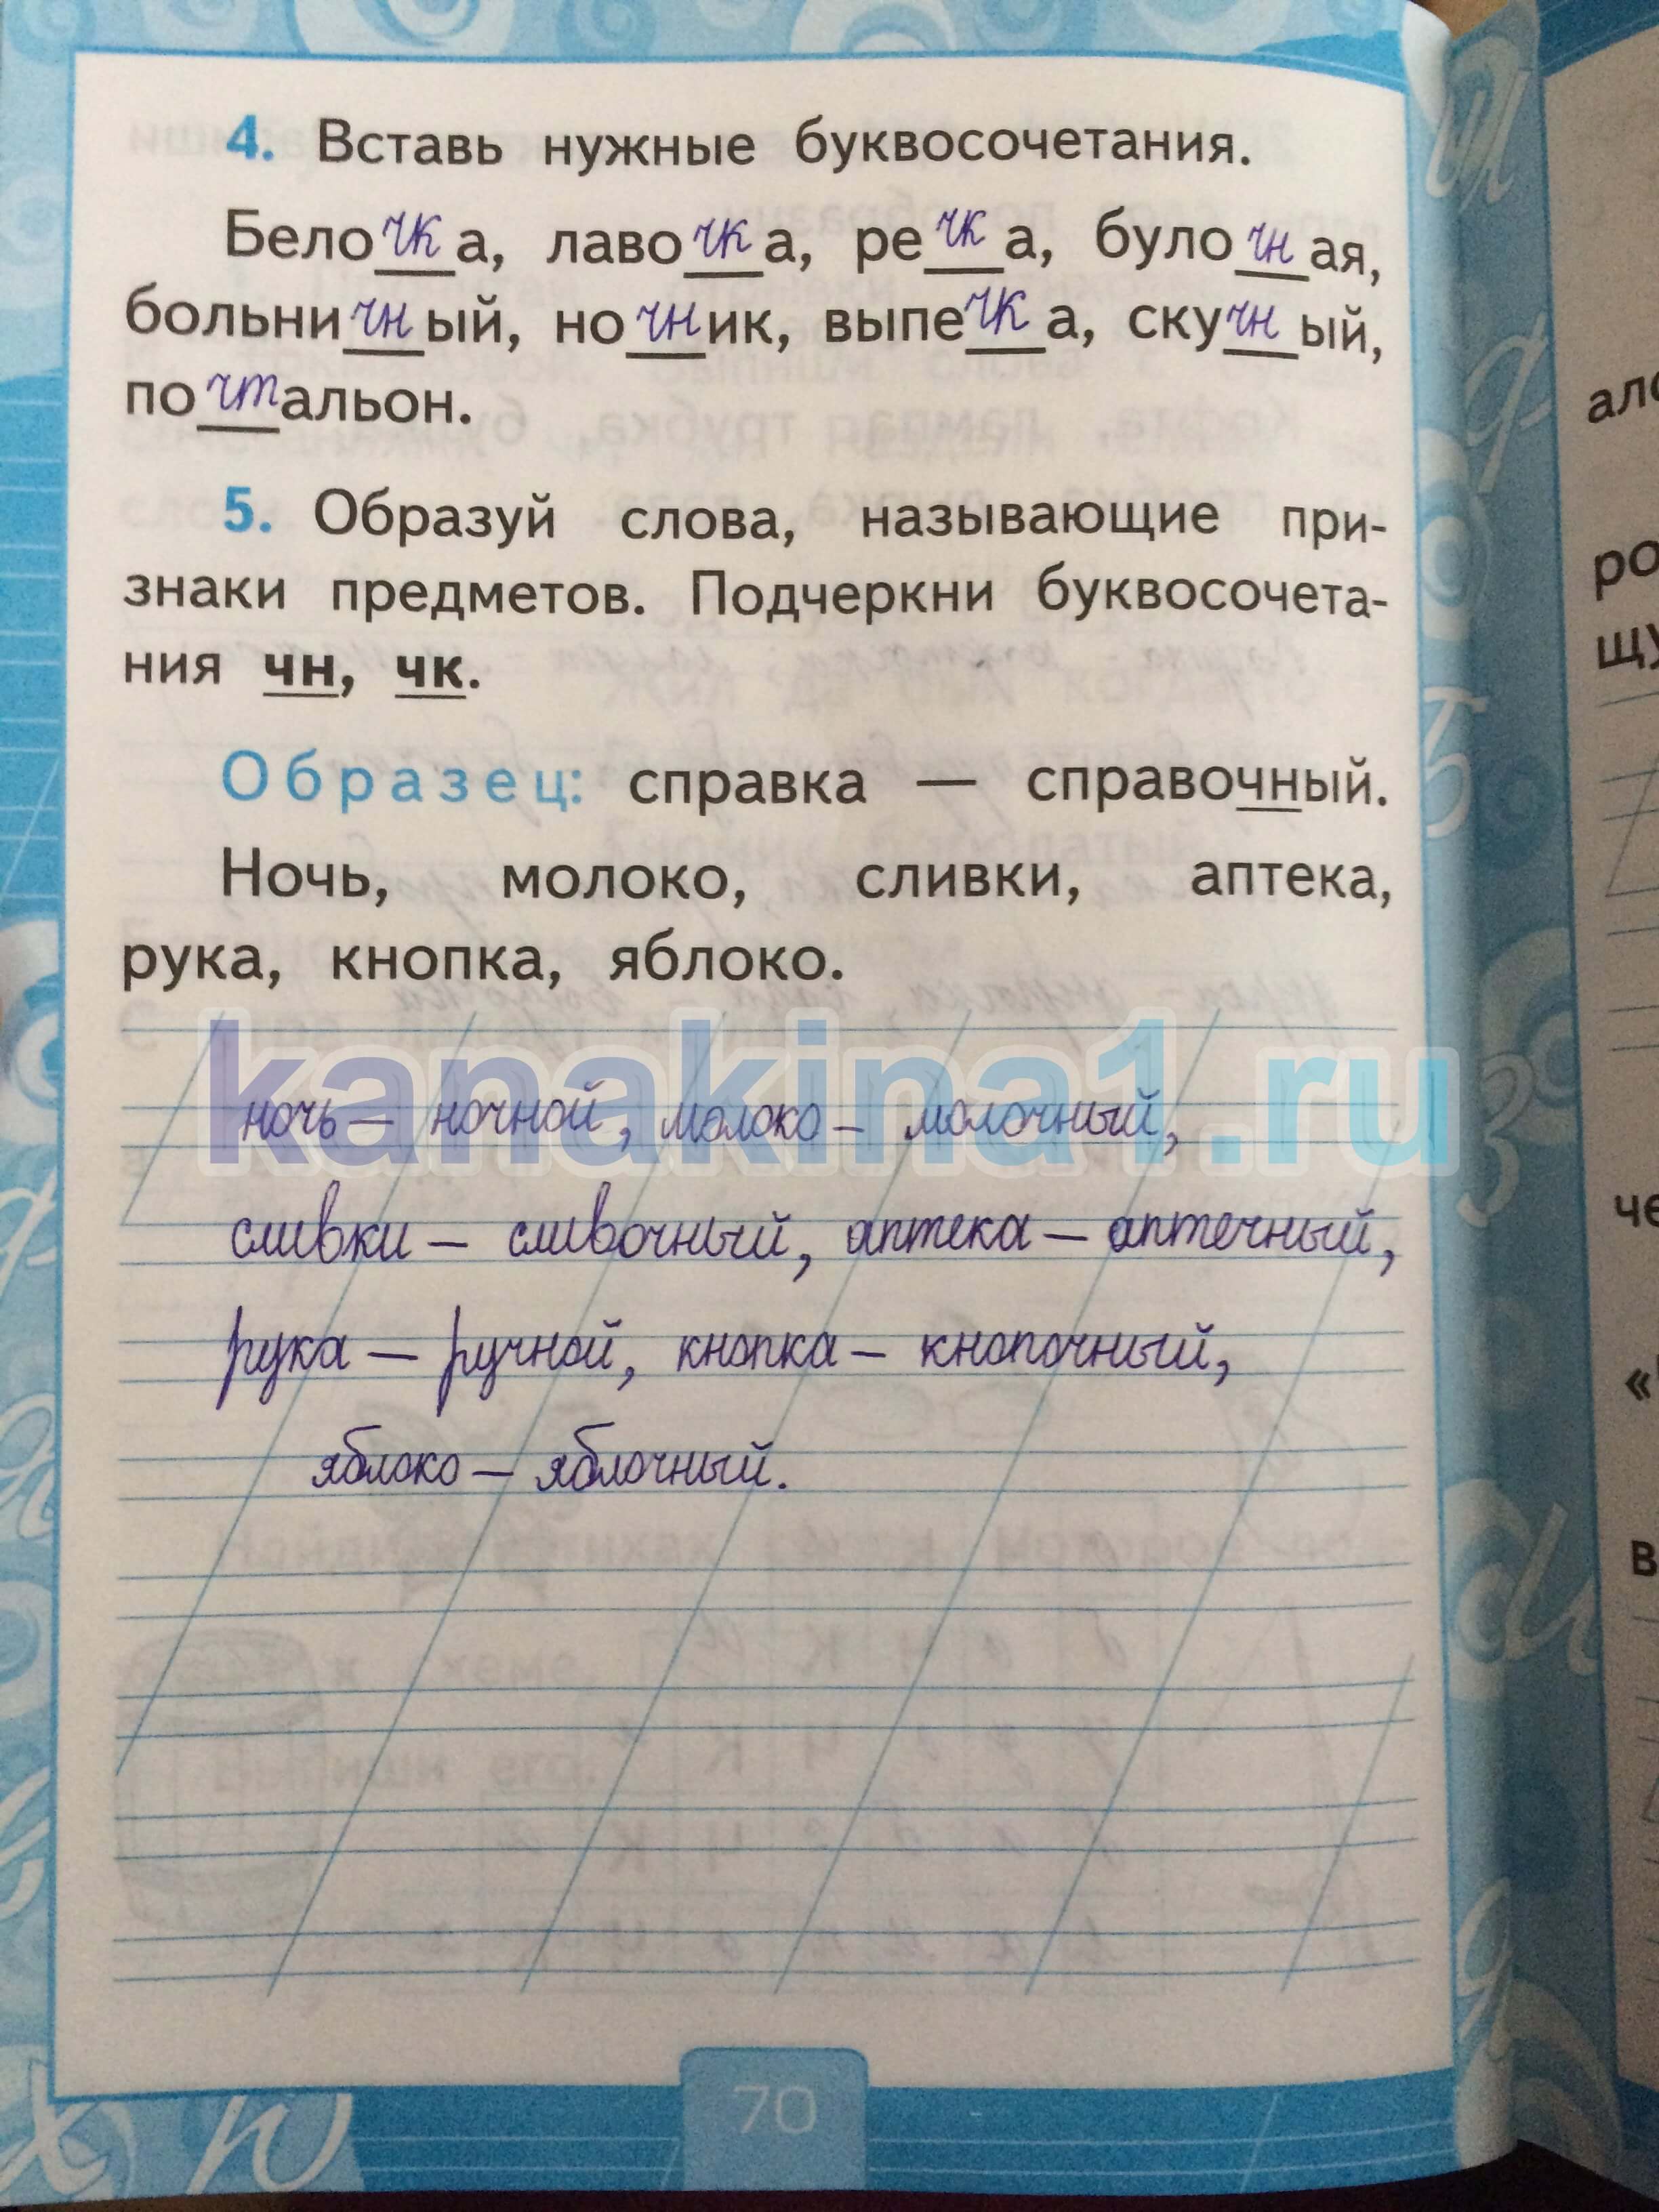 4. Вставь нужные буквосочетания.
Белочка, лавочка, речка, булочная,
больничный, ночник, выпечка, скучный,
почтальон.
5. Образуй слова, называющие при-
знаки предметов. Подчеркни буквосочета-
ния чн, чк.
Образец: справка — справочный.
Ночь, молоко, сливки, аптека,
рука, кнопка, яблоко.
kanakina1.ru
ночь — ночной, молоко — молочный,
сливки — сливочный, аптека — аптечный,
рука — ручной, кнопка — кнопочный,
яблоко — яблочный.
70